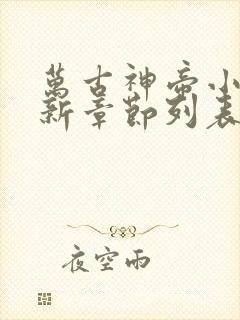 萬古神帝小
新章節列表
夜空雨